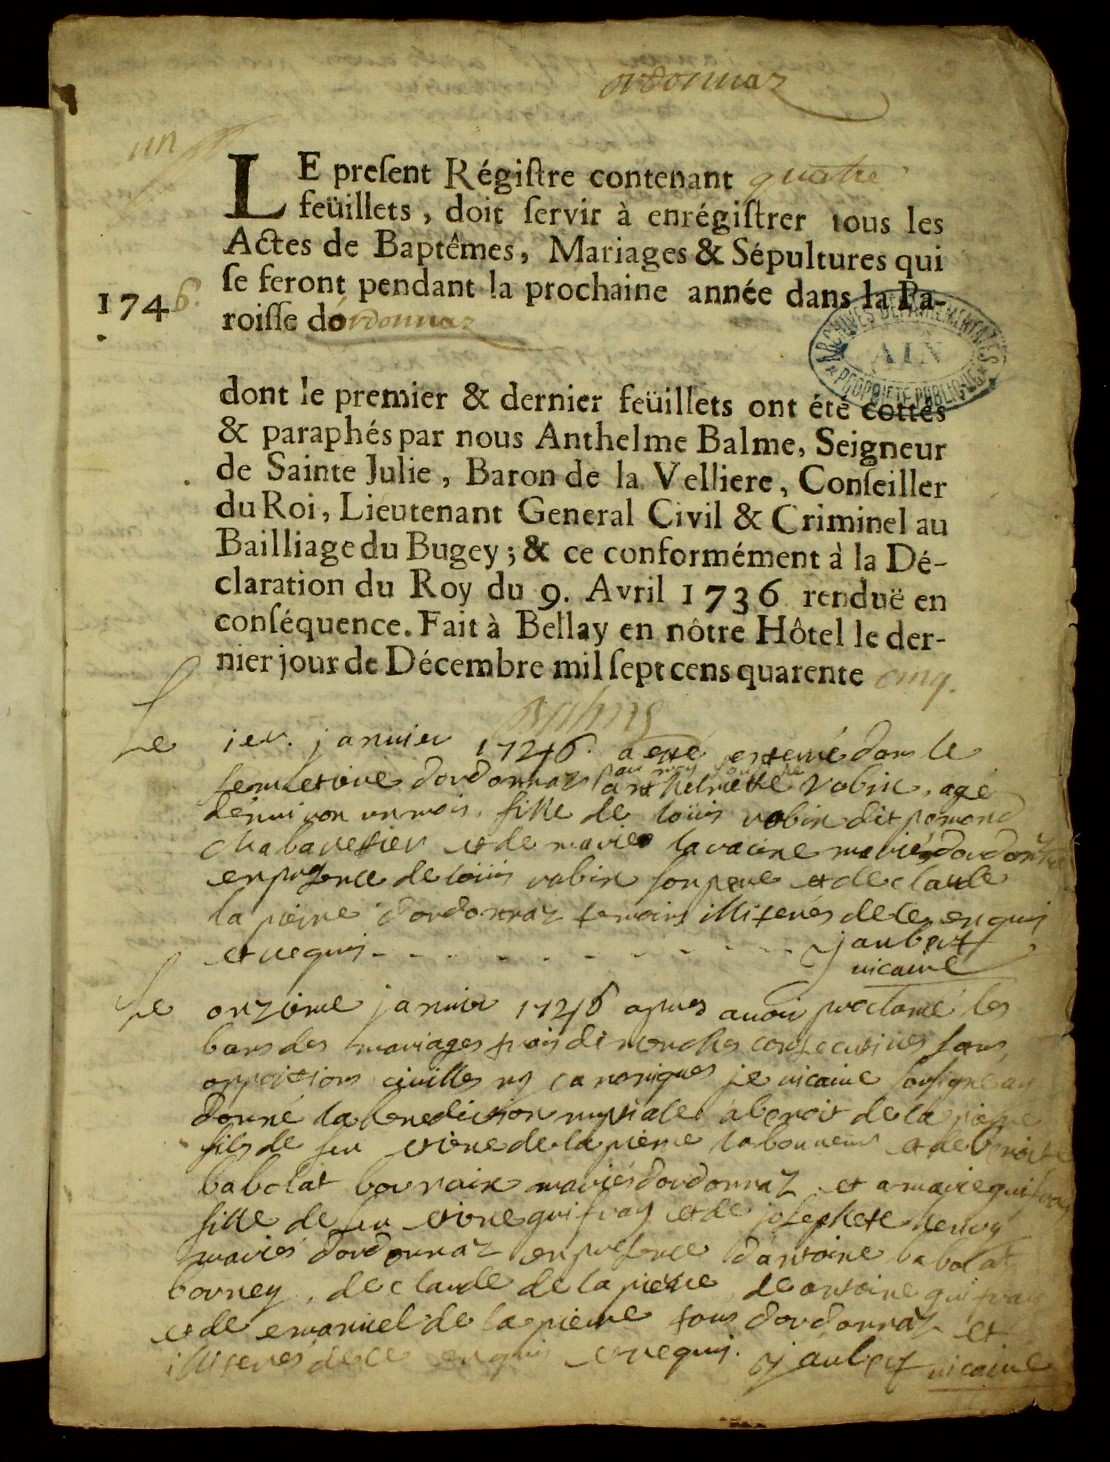 ordonnaz
un
LE preſent Régiſtre contenant quatre
feüillets, doit ſervir à enrégiſtrer tous les
Actes de Baptêmes, Mariages & Sépultures qui
ſe feront pendant la prochaine année dans la Pa-
1746.
roiſſe dordonnaz
ARCHIVES DEPARTEMENTALES
AIN
PROPRIETE PUBLIQUE
dont le premier & dernier feüillets ont été cottés
& paraphés par nous Anthelme Balme, Seigneur
de Sainte Julie, Baron de la Velliere, Conſeiller
du Roi, Lieutenant General Civil & Criminel au
Bailliage du Bugey; & ce conformément à la Dé-
claration du Roy du 9. Avril 1736 renduë en
conſéquence. Fait à Bellay en nôtre Hôtel le der-
nier jour de Décembre mil ſept cens quarente cinq.
Balme
Le ier. janvier 1746. a esté enterré dans le
cimetiere dordonnaz par moy soussigné anthelmette robin, agé
denviron un mois, fille de loüis robin dit
et de marie mariés dordonnaz
en presence de loüis robin son pere et de claude
la pierre dordonnaz temoins illiterés de ce enquis
et requis jaubert
vicaire
Le onzieme janvier 1746 apres avoir proclamé les
bans des mariages trois dimenches consecutives sans
oppositions civilles ny canoniques je vicaire soussigné ay
donné la benediction nuptiale a benoit de la pierre
fils de feu etiene de la pierre laboureur et de benoite
babolat mariés dordonnaz et a marie
fille de feu etiene et de josephete
mariés dordonnaz en presence dantoine babolat
de claude de la pierre, de antoine
et de emanuel de la pierre tous dordonnaz et
illiterés de ce enquis et requis. jaubert vicaire